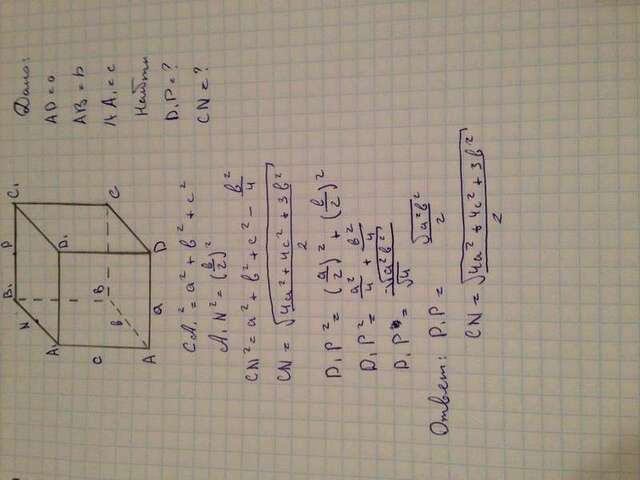 Дано:
AD = a
AB = b
AA₁ = c
Найти
D₁P = ?
CN = ?
B₁ P C₁
N
A₁ D₁
c B C
b
A a D
CA₁² = a² + b² + c²
A₁N² = (b/2)²
CN² = a² + b² + c² - b²/4
CN = √(4a² + 4c² + 3b²)/2
D₁P² = (a/2)² + (b/2)²
D₁P² = a²/4 + b²/4
D₁P = √(a²b²)/√4 √(a²b²)/2
Ответ: D₁P =
CN = √(4a² + 4c² + 3b²)/2